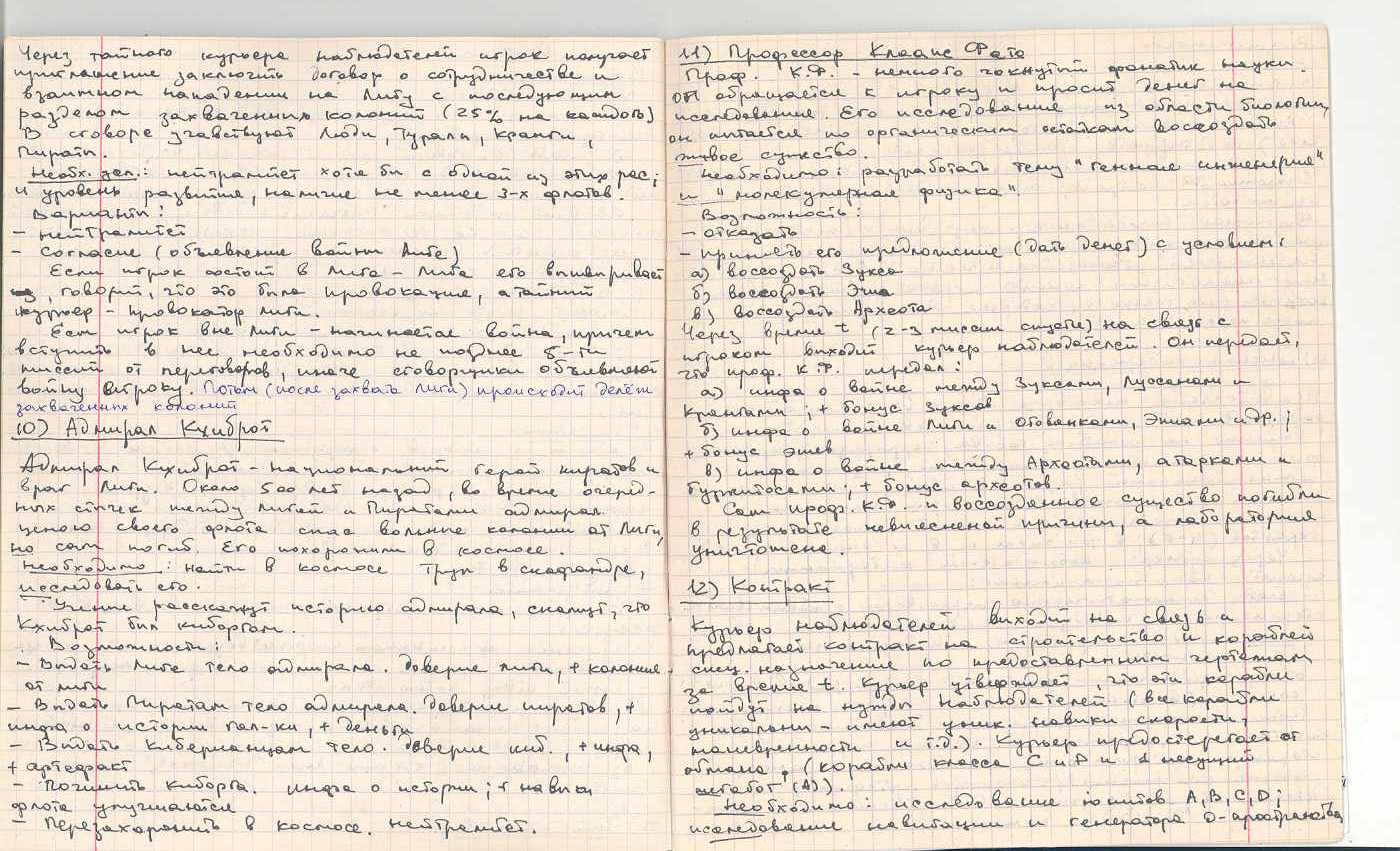 Через тайного курьера наблюдателей игрок получает
приглашение заключить договор о сотрудничестве и
взаимном нападении на Лигу с последующим
разделом захваченных колоний (25% на каждого)
В сговоре учавствуют Люди, Туралы, Кранги,
Пираты.
Необх. дел.: нейтралитет хотя бы с одной из этих рас;
и уровень развития, наличие не менее 3-х флотов.
Варианты:
- нейтралитет
- Согласие (объявление войны Лиге)
Если игрок состоит в Лиге - Лига его вышвыривает
, говорит, что это была провокация, а тайный
курьер - провокатор лиги.
Если игрок вне Лиги - начинается война, причем
вступить в нее необходимо не позднее 5-ти
миссий от переговоров, иначе сговорщики объявляют
войну игроку. Потом (после захвата Лиги) происходит делёж
захваченных колоний
10) Адмирал Кхиброт
Адмирал Кхиброт - национальный герой пиратов и
враг Лиги. Около 500 лет назад, во время очеред-
ных стычек между Лигой и Пиратами адмирал
ценою своего флота спас вольные колонии от Лиги,
но сам погиб. Его похоронили в космосе.
Необходимо: найти в космосе труп в скафандре,
исследовать его.
Ученые расскажут историю адмирала, скажут, что
Кхиброт был киборгом.
Возможности:
- Выдать Лиге тело адмирала. доверие лиги, + колония
от лиги
- Выдать Пиратам тело адмирала. доверие пиратов, +
инфа о истории гал-ки, + деньги
- Выдать Киберианцам тело. доверие киб., + инфа,
+ артефакт
- Починить киборга. инфа о истории; + навыки
флота улучшаются
- Перезахоронить в космосе. нейтралитет.
11) Профессор Клаапс Фато
Проф. К.Ф. - немного чокнутый фанатик науки.
Он обращается к игроку и просит денег на
исследования. Его исследование из области биологии,
он пытается по органическим остаткам воссоздать
живое существо.
Необходимо: разработать тему "генная инженерия"
и "молекулярная физика".
Возможность:
- отказать
- принять его предложение (дать денег) с условием:
а) воссоздать Зукса
б) воссоздать Эша
в) воссоздать Археота
Через время t (2-3 миссии спустя) на связь с
игроком выходит курьер наблюдателей. Он передает,
что проф. К.Ф. передал:
а) инфа о войне между Зуксами, Луосанами и
Крангами; + бонус Зуксов
б) инфа о войне Лиги и Отованками, Эшами и др.;
+ бонус эшев
в) инфа о войне между Археотами, атарками и
Буржитосами; + бонус археотов.
Сам проф. К.Ф. и воссозданное существо погибли
в результате невыясненой причины, а лаборатория
уничтожена.
12) Контракт
Курьер наблюдателей выходит на связь и
предлагает контракт на строительство и кораблей
спец. назначения по предоставленным чертежам
за время t. Курьер утверждает, что эти корабли
пойдут на нужды Наблюдателей (все корабли
уникальны - имеют уник. навыки скорости,
маневренности и т.д.). Курьер предостерегает от
обмана, (корабли класса C и D и 1 несущий
мегабот (A)).
Необходимо: исследование юнитов A, B, C, D;
исследование навигации и генератора D-пространства